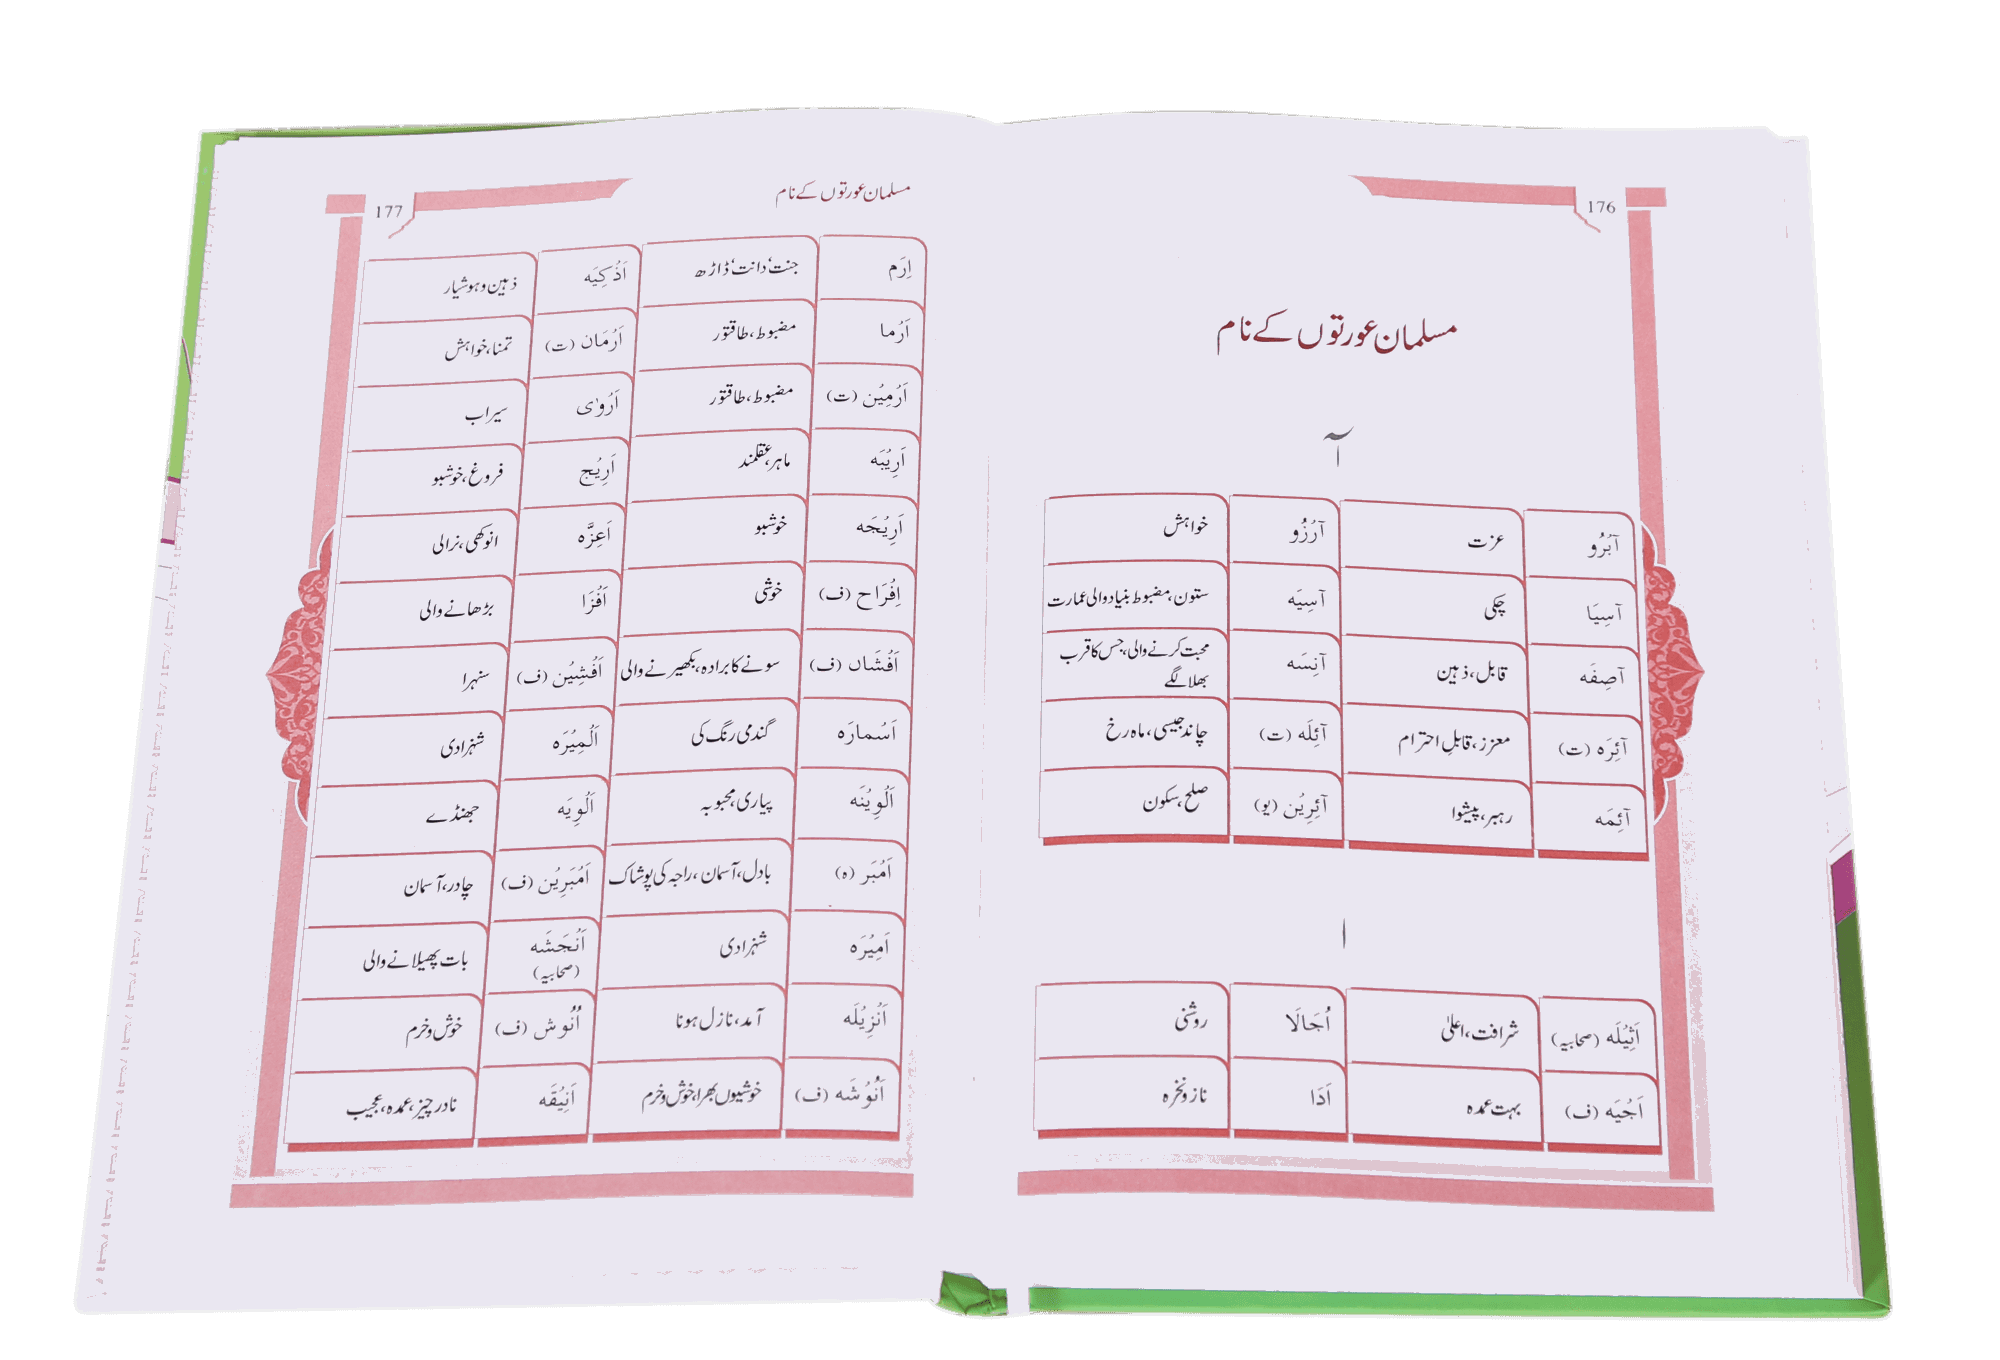 176
مسلمان عورتوں کے نام
آ
آبُرُو عزت آرُزُو خواہش
آسِیَا چکی آسِیَه ستون، مضبوط بنیاد والی عمارت
آصِفَه قابل، ذہین آنِسَه محبت کرنے والی، جس کا قرب
بھلا لگے
آئِرَه (ت) معزز، قابلِ احترام آئِلَه (ت) چاند جیسی، ماہ رخ
آئِمَه رہبر، پیشوا آئِرِیُن (یو) صلح، سکون
ا
اَثِیُلَه (صحابیہ) شرافت، اعلیٰ اُجَالَا روشنی
اَجُیَه (ف) بہت عمدہ اَدَا ناز و نخرہ
مسلمان عورتوں کے نام
177
اِرَم جنت، دانت، ڈاڑھ اَذُکِیَه ذہین و ہوشیار
اَرُما مضبوط، طاقتور اَرُمَان (ت) تمنا، خواہش
اَرُمِیُن (ت) مضبوط، طاقتور اَرُوٰی سیراب
اَرِیُبَه ماہر، عقلمند اَرِیُج فروغ، خوشبو
اَرِیُجَه خوشبو اَعِزَّه انوکھی، نرالی
اِفُرَاح (ف) خوشی اَفُزَا بڑھانے والی
اَفُشَاں (ف) سونے کا برادہ، بکھیرنے والی اَفُشِیُن (ف) سنہرا
اَسُمارَه گندمی رنگ کی اَلُمِیُرَه شہزادی
اَلُوِیُنَه پیاری، محبوبہ اَلُوِیَه جھنڈے
اَمُبَر (ہ) بادل، آسمان، راجہ کی پوشاک اَمُبَرِیُن (ف) چادر، آسمان
اَمِیُرَه شہزادی اَنُجَشَه بات پھیلانے والی
(صحابیہ)
اَنُزِیُلَه آمد، نازل ہونا اُنُوش (ف) خوش و خرم
اَنُوُشَه (ف) خوشیوں بھرا، خوش و خرم اَنِیُقَه نادر چیز، عمدہ، عجیب